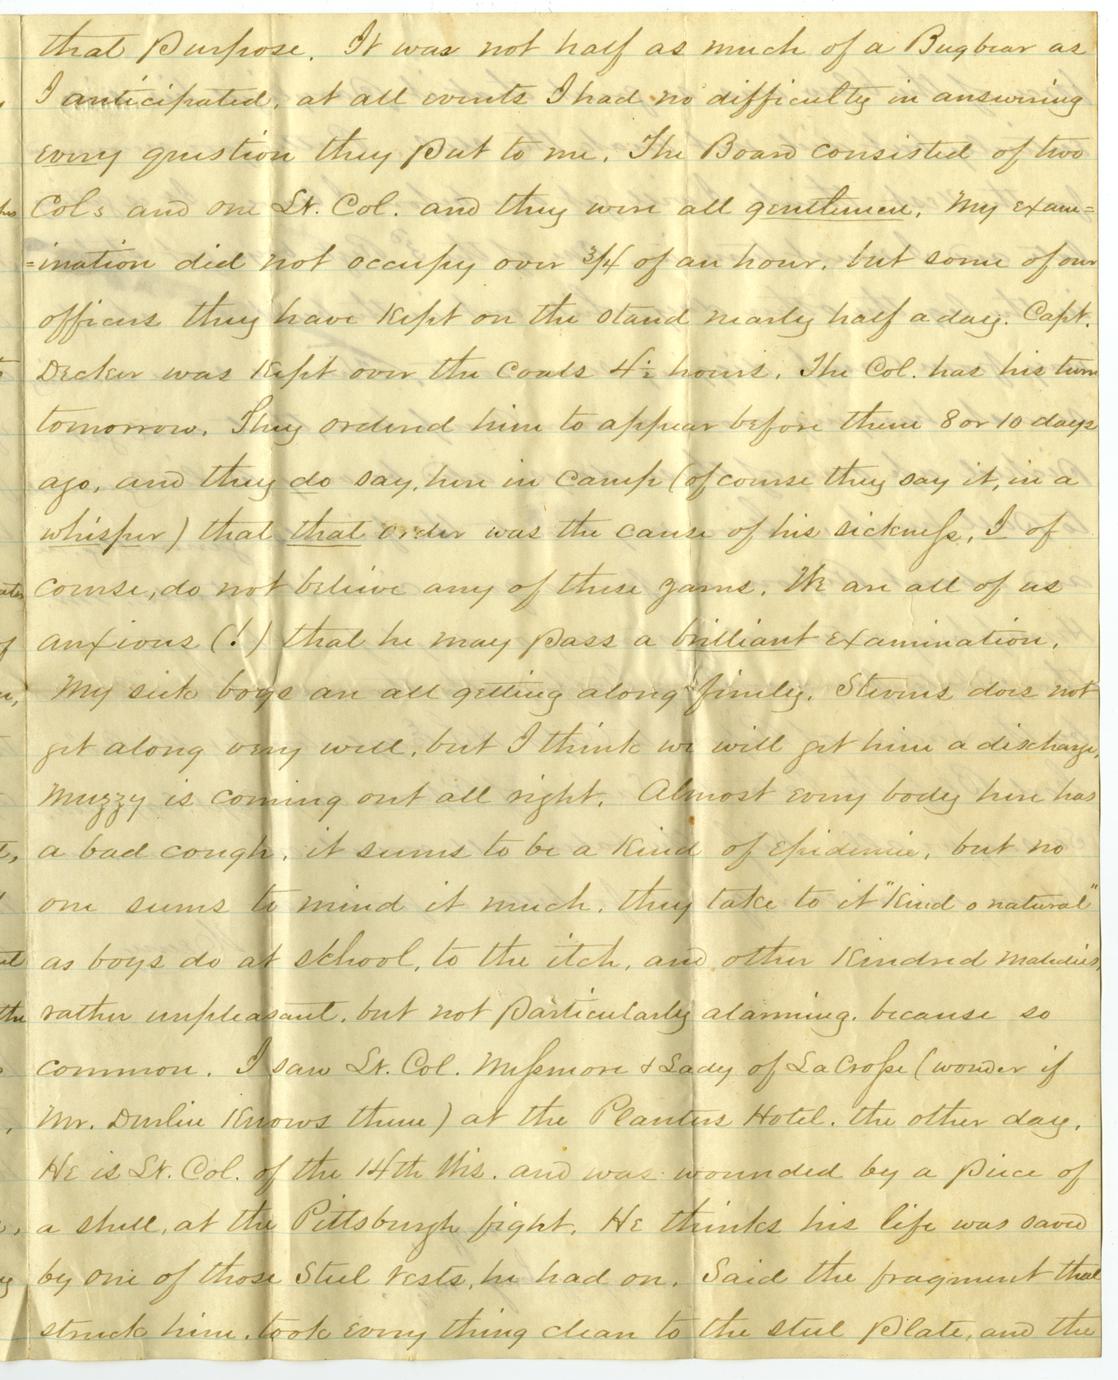 that Purpose. It was not half as much of a Bugbear as
I anticipated, at all events I had no difficulty in answering
every question they put to me. The Board consisted of two
Cols and one Lt. Col. and they were all gentlemen. My exam=
=ination did not occupy over 3/4 of an hour, but some of our
officers they have Kept on the stand nearly half a day. Capt.
Decker was Kept over the Coals 4½ hours. The Col. has his turn
tomorrow. They ordered him to appear before them 8 or 10 days
ago, and they do say, here in camp (of course they say it, in a
whisper) that that order was the cause of his sickness, I of
course, do not believe any of these yarns. We are all of us
anxious (!) that he may pass a brilliant examination.
My sick boys are all getting along finely. Stevens does not
get along very well, but I think we will get him a discharge,
Muzzy is coming out all right. Almost every body here has
a bad cough, it seems to be a Kind of epidemic, but no
one seems to mind it much. they take to it "Kind o natural"
as boys do at school, to the itch, and other Kindred maladies,
rather unpleasant, but not particularly alarming, because so
common. I saw Lt. Col. Messmore & Lady of LaCrosse (wonder if
Mr. Durlin Knows them) at the Planters Hotel. the other day.
He is Lt. Col. of the 14th Wis. and was wounded by a piece of
a shell, at the Pittsburgh fight. He thinks his life was saved
by one of those Steel vests, he had on. Said the fragment that
struck him, took every thing clean to the steel Plate, and the